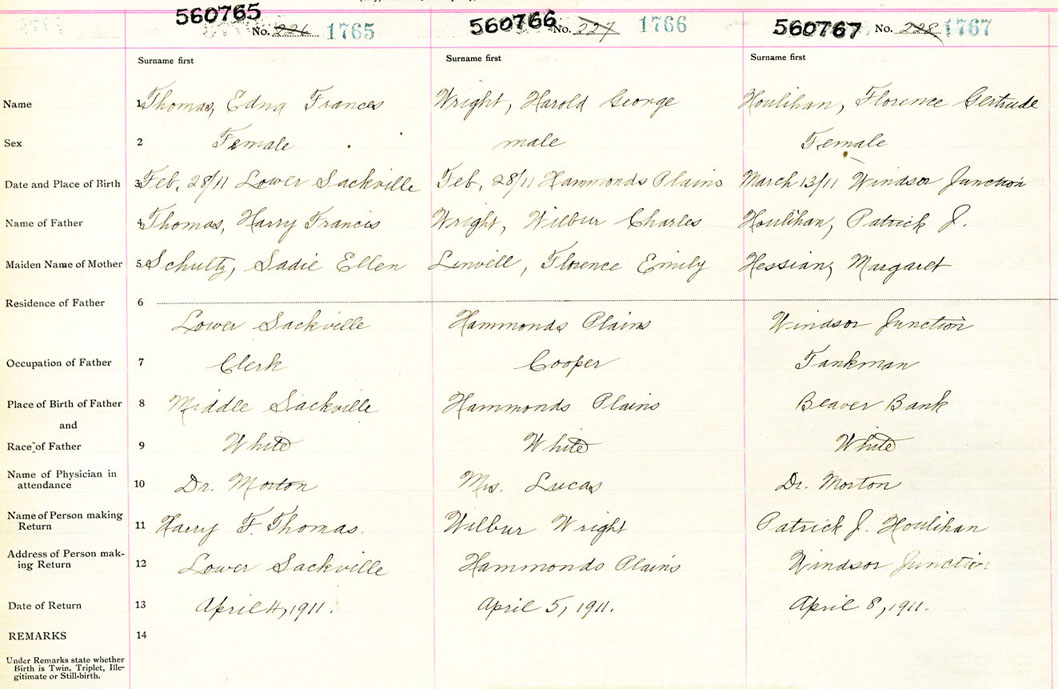 560765 560766 560767
No. 226 1765 No. 227 1766 No. 228 1767
Surname first Surname first Surname first
Name 1 Thomas, Edna Frances Wright, Harold George Houlihan, Florence Gertrude
Sex 2 Female male Female
Date and Place of Birth 3 Feb. 28/11 Lower Sackville Feb. 28/11 Hammonds Plains March 13/11 Windsor Junction
Name of Father 4 Thomas, Harry Francis Wright, Wilbur Charles Houlihan, Patrick J.
Maiden Name of Mother 5 Schultz, Sadie Ellen Florence Emily Hessian, Margaret
Residence of Father 6
Lower Sackville Hammonds Plains Windsor Junction
Occupation of Father 7 Clerk Cooper Tankman
Place of Birth of Father 8 Middle Sackville Hammonds Plains Beaver Bank
and
Race of Father 9 White White White
Name of Physician in
attendance 10 Dr. Morton Mrs. Lucas Dr. Morton
Name of Person making
Return 11 Harry F. Thomas. Wilbur Wright Patrick J. Houlihan
Address of Person mak-
ing Return 12 Lower Sackville Hammonds Plains Windsor Junction
Date of Return 13 April 4, 1911. April 5, 1911. April 8, 1911.
REMARKS 14
Under Remarks state whether
Birth is Twin, Triplet, Ille-
gitimate or Still-birth.